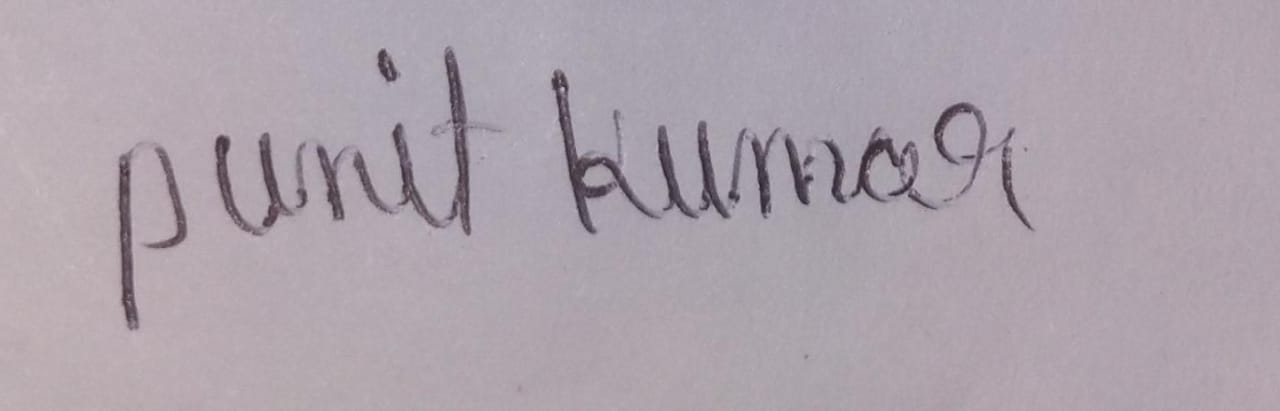 punit kumar